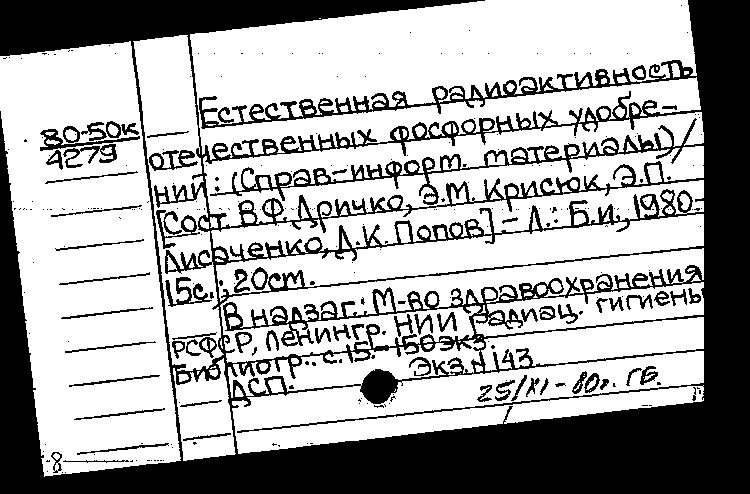 80-50к
4279
Естественная радиоактивность
отечественных фосфорных удобре-
ний: (Справ.-информ. материалы)/
[Сост. В.Ф. Дричко, Э.М. Крисюк, Э.П.
Лисаченко, Д.К. Попов]. - Л.: Б.и., 1980.-
15с.; 20см.
В надзаг.: М-во здравоохранения
РСФСР, Ленингр. НИИ радиац. гигиены
Библиогр.: с.15.-150экз.
ДСП. Экз. N 143.
25/XI-80г. ГБ.
8